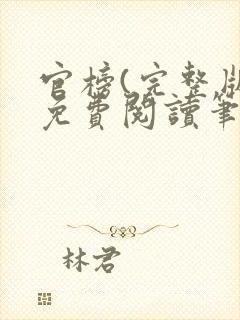 官榜(完整版
免費閱讀筆
林君